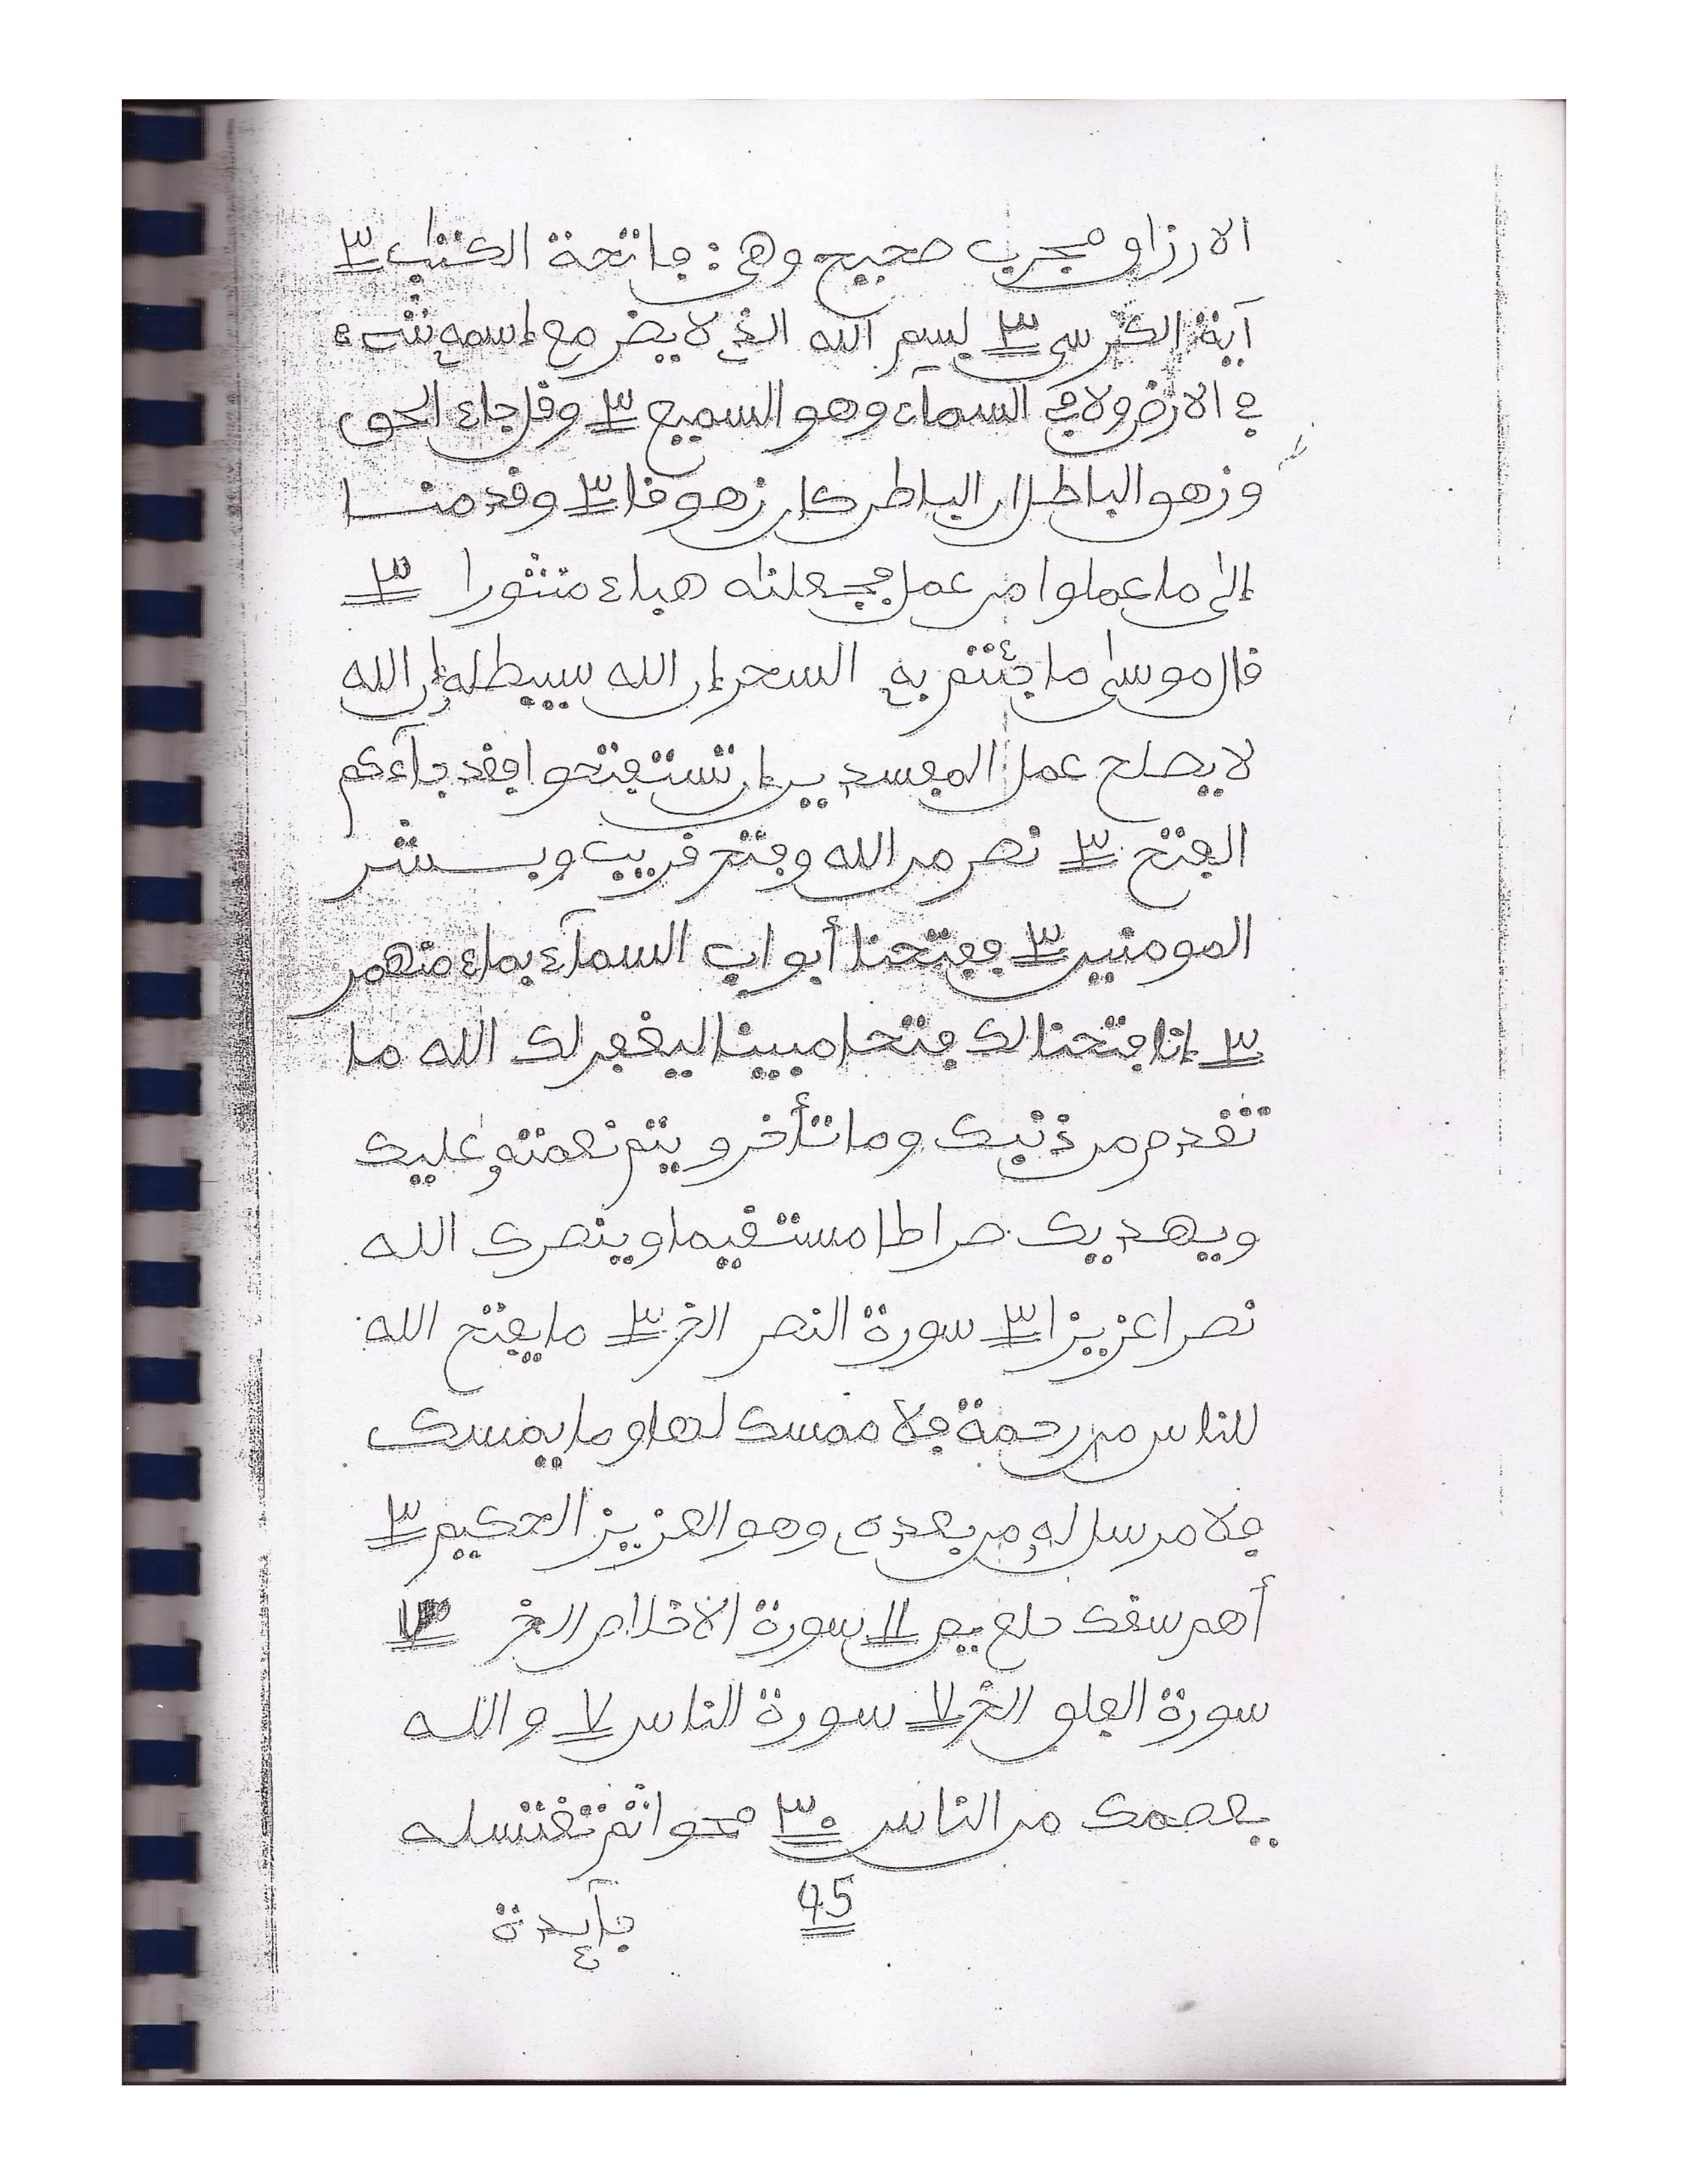 الارزاق مجرب صحيح وهي: فاتحة الكتٰب ٣
آية الكرسي ٣ بسم الله الذي لا يضر مع إسمه شيء
في الارض ولا في السمآء وهو السميع ٣ وقل جاء الحق
وزهق الباطل ان الباطل كان زهوقا ٣ وقدمنا
إلىٰ ما عملوا من عمل فجعلنٰه هباء منثورا ٣
قال موسىٰ ما جئتم به السحر إن الله سيبطله إن الله
لا يصلح عمل المفسدين إن تستفتحوا فقد جآءكم
الفتح ٣ نصر من الله وفتح قريب وبشر
المومنين ٣ ففتحنا أبواب السمآء بماء منهمر
٣ إنا فتحنا لك فتحا مبينا ليغفر لك الله ما
تقدم من ذنبك وما تأخر ويتم نعمته عليك
ويهديك صراطا مستقيما وينصرك الله
نصرا عزيزا ٣ سورة النصر الخ ٣ ما يفتح الله
للناس من رحمة فلا ممسك لها وما يمسك
فلا مرسل له من بعده وهو العزيز الحكيم ٣
أهم سقك حلع يص ١١ سورة الاخلاص الخ
سورة الفلق الخ ٧ سورة الناس ٧ والله
يعصمك من الناس ٣٠ محوا ثم تغتسله
45
فآيدة